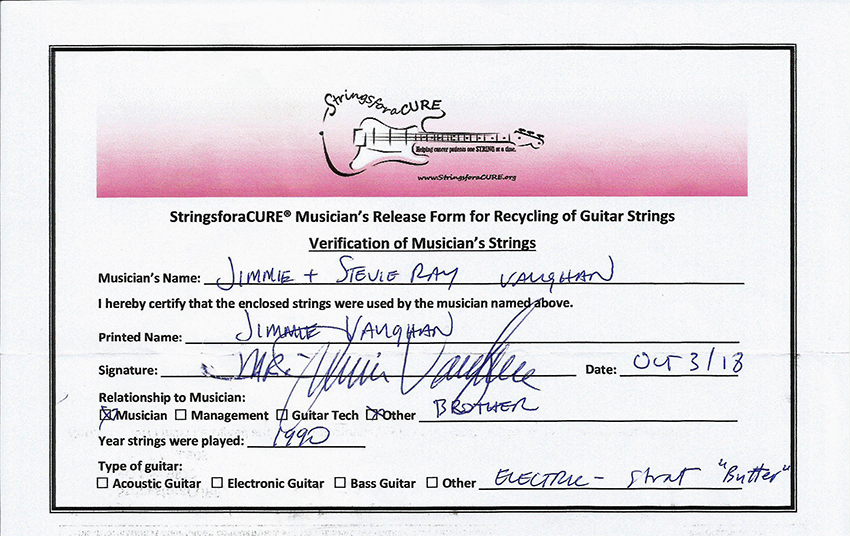 StringsforaCURE
Helping cancer patients one STRING at a time.
www.StringsforaCURE.org
StringsforaCURE® Musician's Release Form for Recycling of Guitar Strings
Verification of Musician's Strings
Musician's Name: JIMMIE + STEVIE RAY VAUGHAN
I hereby certify that the enclosed strings were used by the musician named above.
Printed Name: JIMMIE VAUGHAN
Signature: Jimmie Vaughan Date: OCT 3/18
Relationship to Musician:
☒ Musician ☐ Management ☐ Guitar Tech ☒ Other BROTHER
Year strings were played: 1990
Type of guitar:
☐ Acoustic Guitar ☐ Electronic Guitar ☐ Bass Guitar ☐ Other ELECTRIC - Strat "Butter"